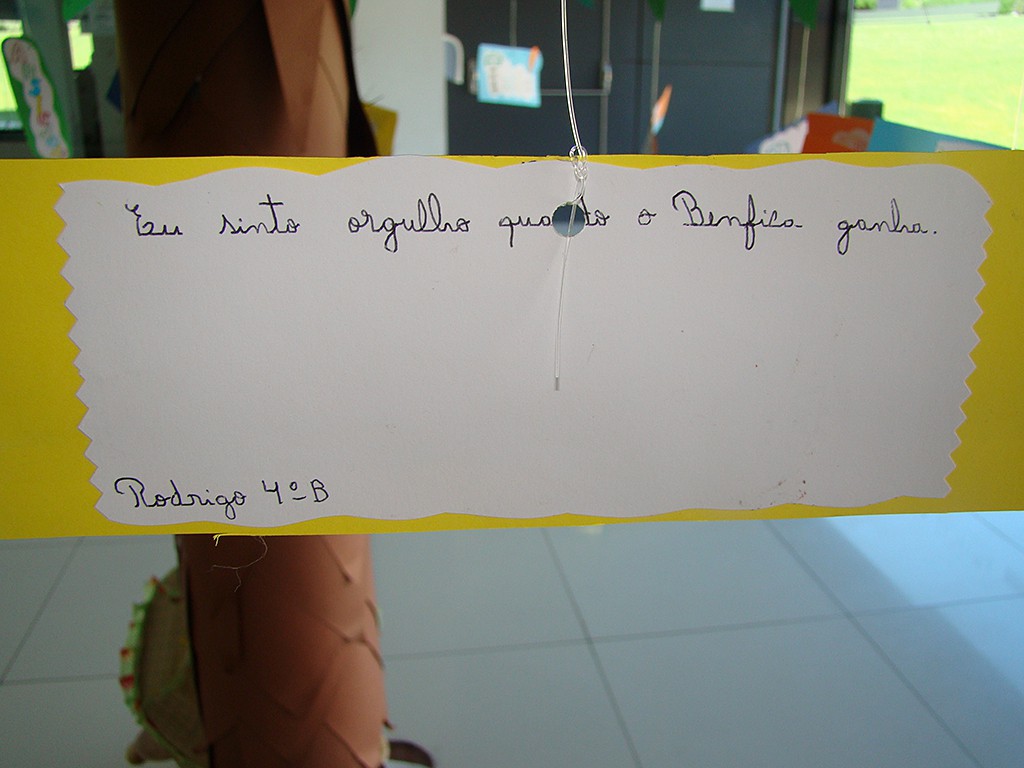 Eu sinto orgulho quanto o Benfica ganha.
Rodrigo 4º B